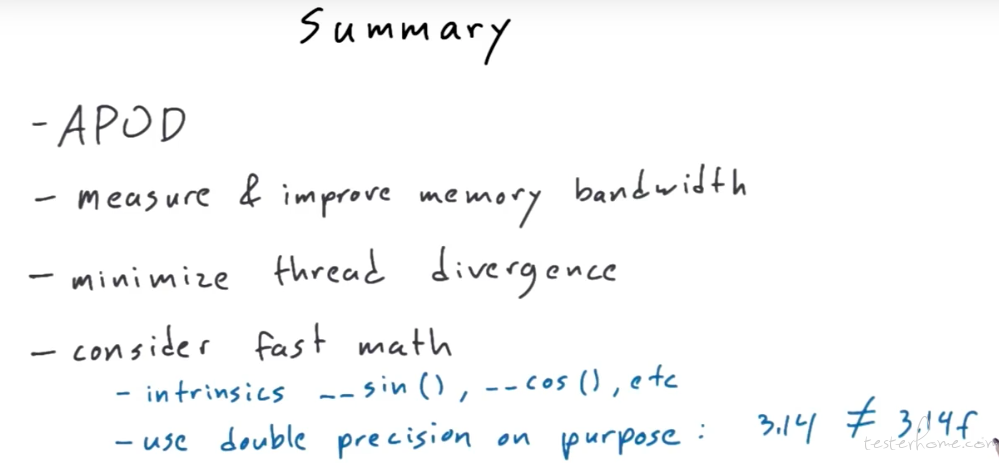 Summary
- APOD
- measure & improve memory bandwidth
- minimize thread divergence
- consider fast math
- intrinsics __sin(), __cos(), etc
- use double precision on purpose: 3.14 ≠ 3.14f
testerhome.com